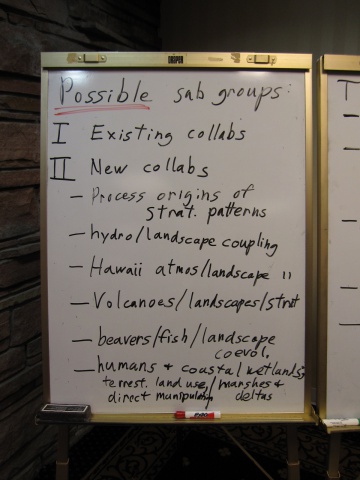 DRAPER
Possible sub groups:
I Existing collabs
II New collabs
— Process origins of
strat. patterns
— hydro/landscape coupling
— Hawaii atmos/landscape "
— Volcanoes/landscapes/strat
— beavers/fish/landscape
coevol.
— humans + coastal wetlands;
terrest. land use/marshes +
direct manipulation deltas
T